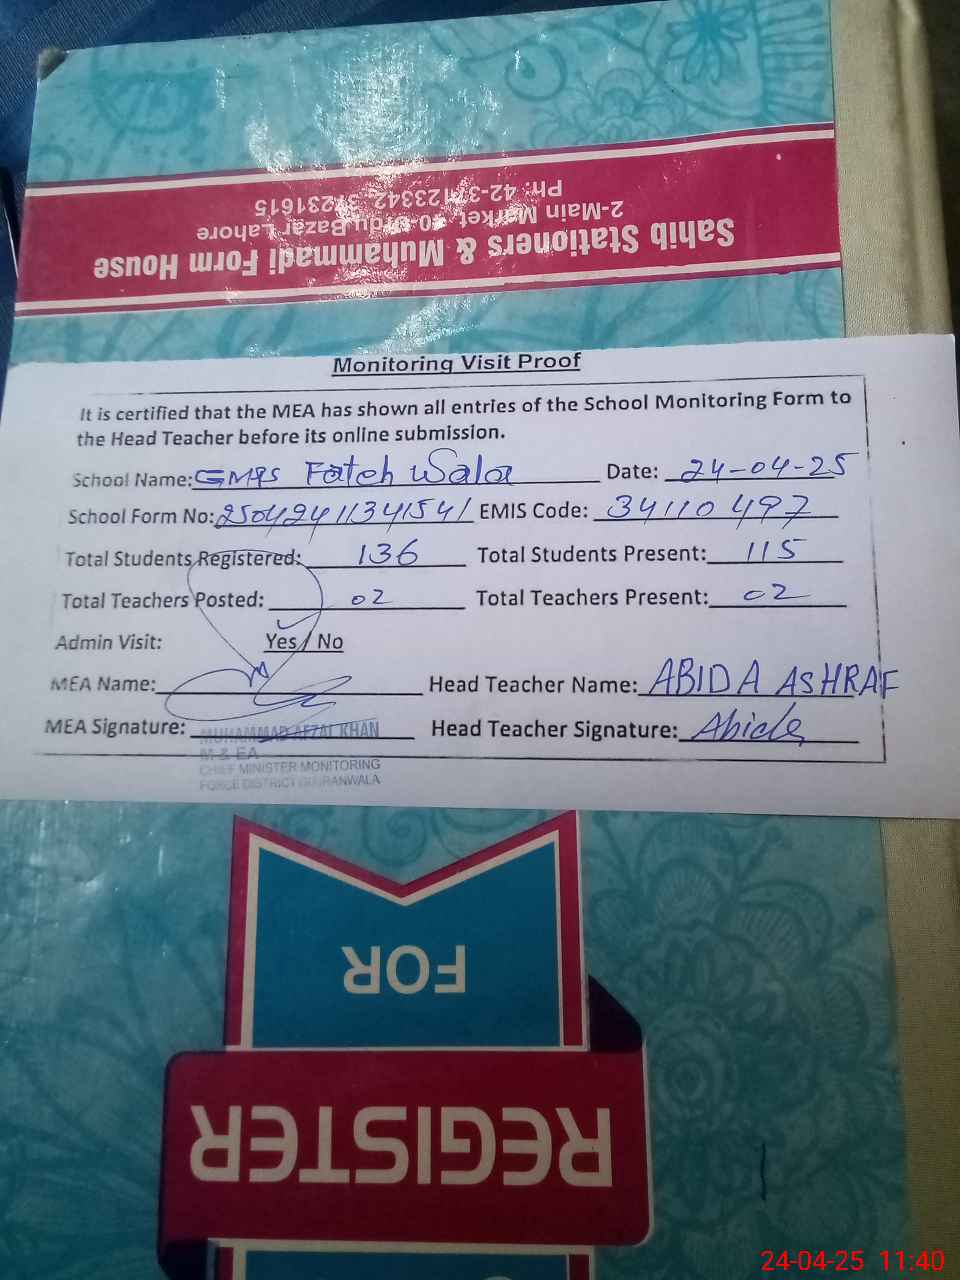 Sahib Stationers & Muhammadi Form House
2-Main Market, 40-Urdu Bazar Lahore
Ph: 42-37123342, 37231615
Monitoring Visit Proof
It is certified that the MEA has shown all entries of the School Monitoring Form to
the Head Teacher before its online submission.
School Name: GMPS Fateh Wala Date: 24-04-25
School Form No: 25042411341541 EMIS Code: 34110497
Total Students Registered: 136 Total Students Present: 115
Total Teachers Posted: 02 Total Teachers Present: 02
Admin Visit: Yes / No
MEA Name: Head Teacher Name: ABIDA ASHRAF
MEA Signature: Head Teacher Signature: Abida
MUHAMMAD AFZAL KHAN
M & EA
CHIEF MINISTER MONITORING
FORCE DISTRICT GUJRANWALA
FOR
REGISTER
24-04-25 11:40